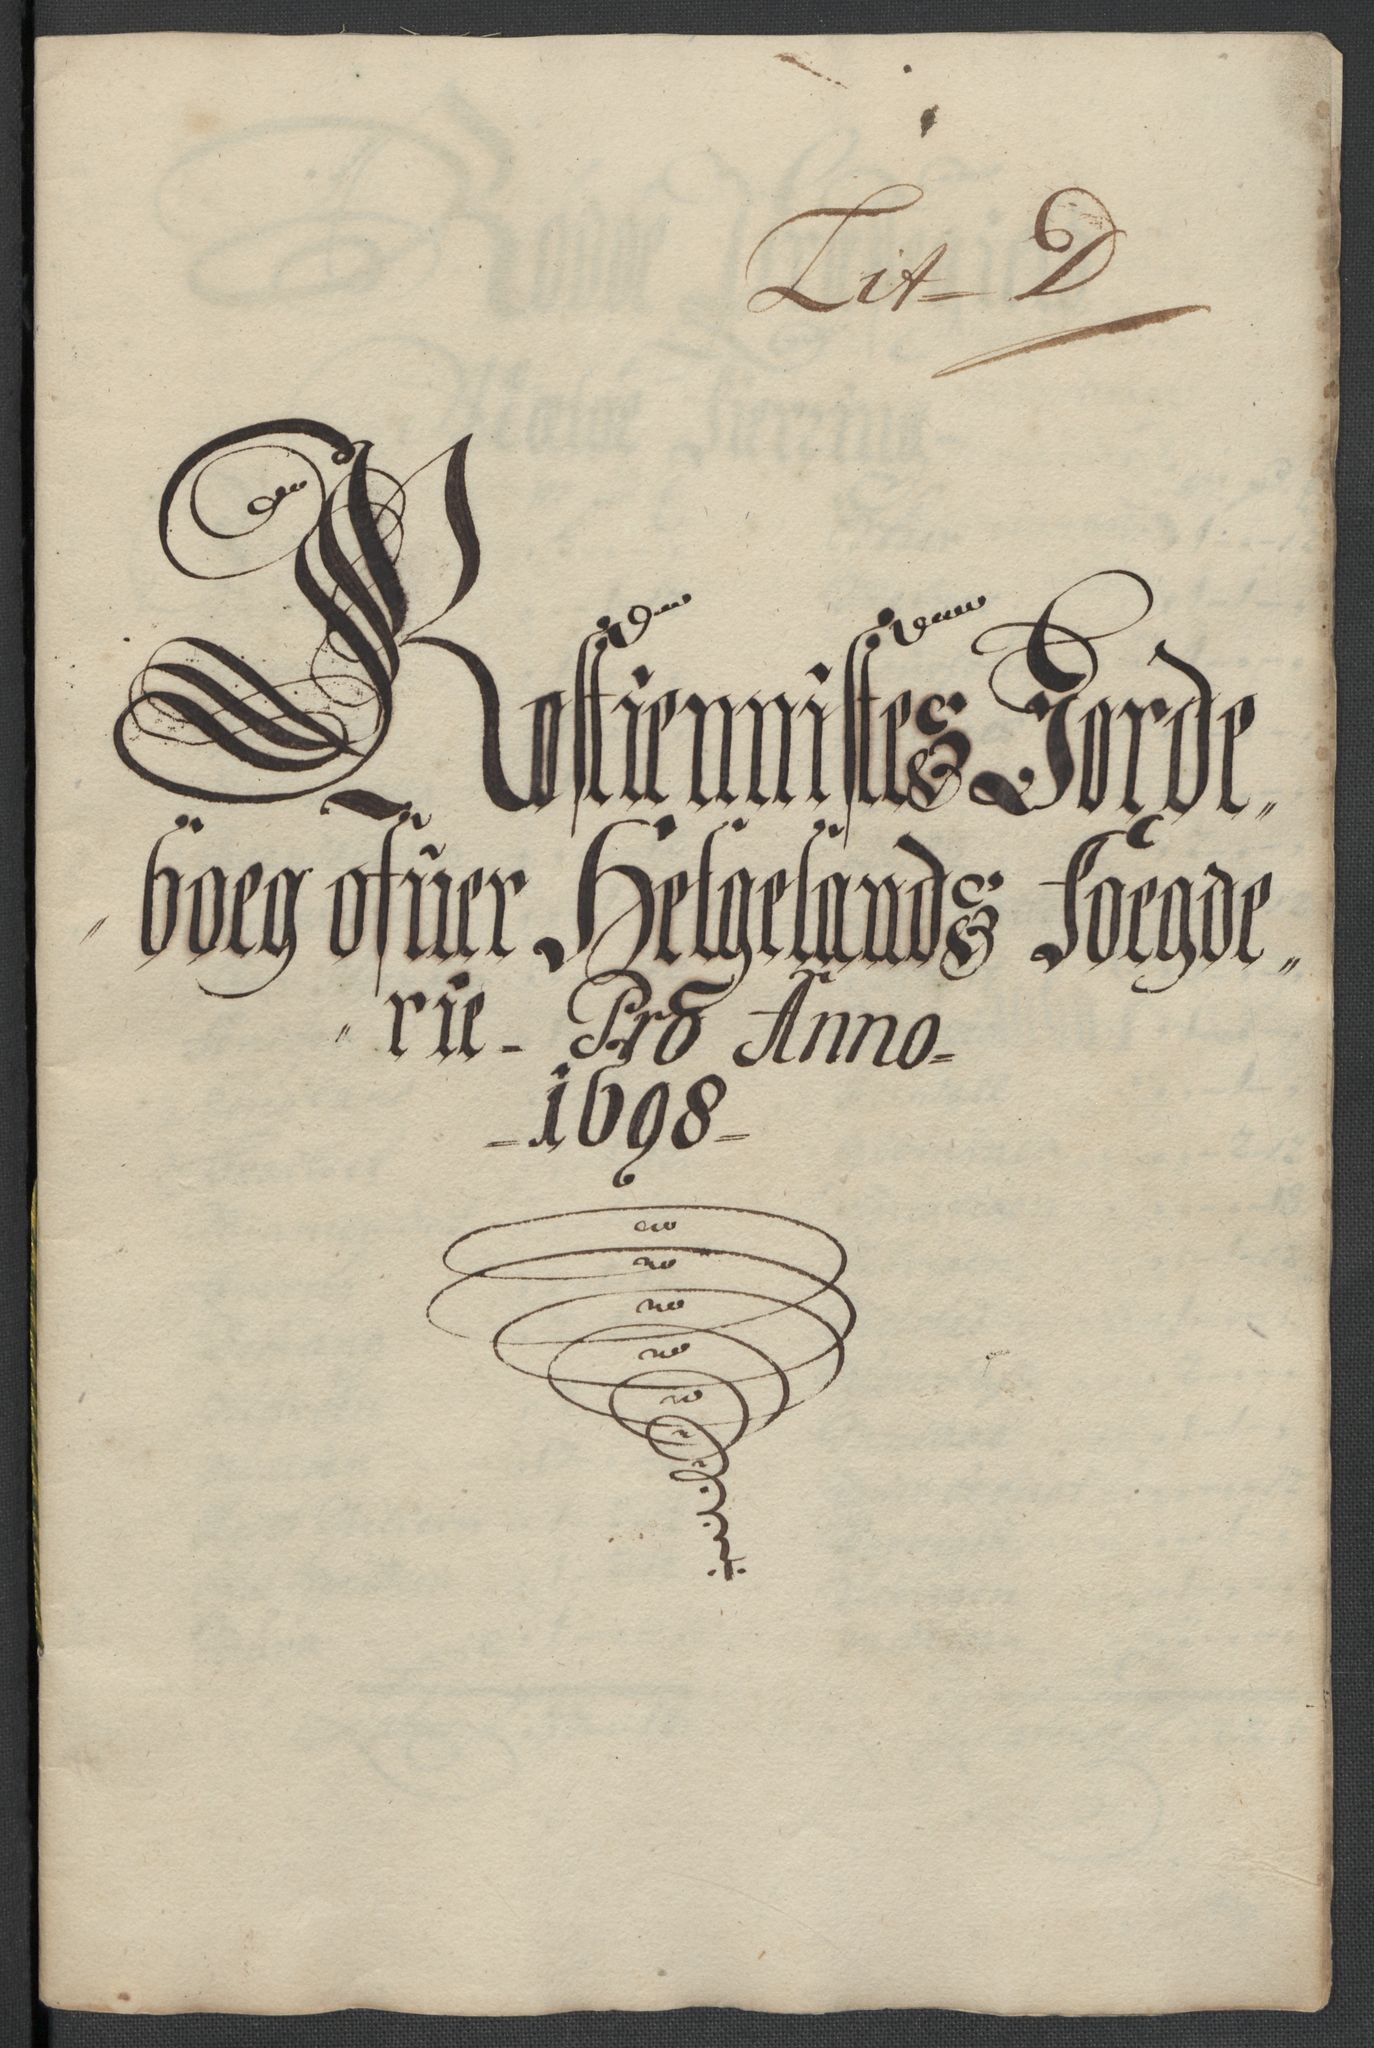 Lit- D
Rostiennistes Jorde„
„boeg ofuer Helgelands Foegde„
„rie- Pro Anno-
-1698-